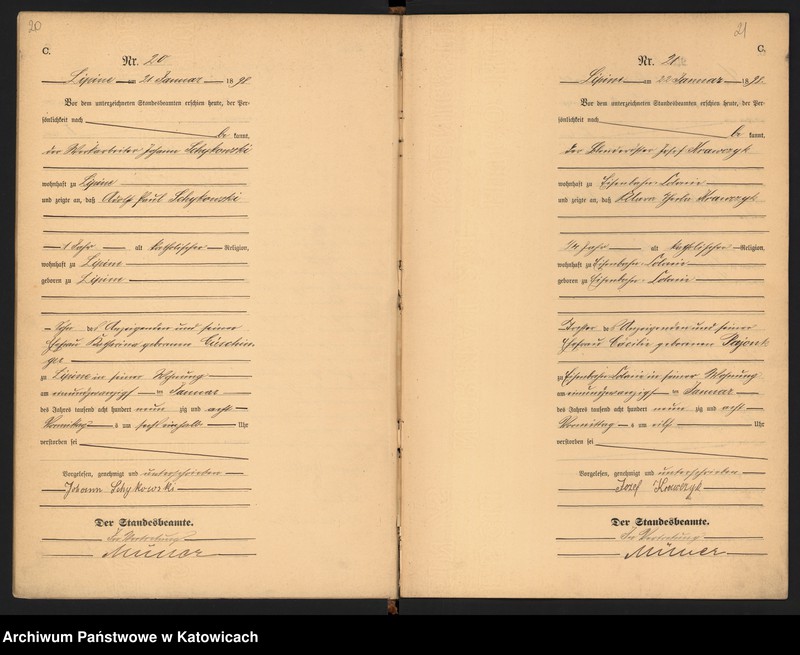 20
C.
Nr. 20
Lipine am 21 Januar 1898
Vor dem unterzeichneten Standesbeamten erschien heute, der Per-
sönlichkeit nach
be kannt,
der Johann Schykowski
wohnhaft zu Lipine
und zeigte an, daß Adolf Paul Schykowski
1 Jahr alt katholischer Religion,
wohnhaft zu Lipine
geboren zu Lipine
Sohn des Anzeigenden und seiner
Ehefrau Katharina geborenen
ger
zu Lipine in seiner Wohnung
am einundzwanzigsten Januar
des Jahres tausend acht hundert neun zig und acht
Vormittags um sechs einhalb Uhr
verstorben sei
Vorgelesen, genehmigt und unterschrieben
Johann Schykowski
Der Standesbeamte.
In Vertretung
21
C.
Nr. 21
Lipine am 22 Januar 1898
Vor dem unterzeichneten Standesbeamten erschien heute, der Per-
sönlichkeit nach
be kannt,
der Josef Krawczyk
wohnhaft zu Eisenbahn-Colonie
und zeigte an, daß Klara Krawczyk
3/4 Jahr alt katholischer Religion,
wohnhaft zu Eisenbahn-Colonie
geboren zu Eisenbahn-Colonie
Tochter des Anzeigenden und seiner
Ehefrau Cäcilie geborenen Pajonk
zu Eisenbahn-Colonie in seiner Wohnung
am einundzwanzigsten Januar
des Jahres tausend acht hundert neun zig und acht
Vormittag um elf Uhr
verstorben sei
Vorgelesen, genehmigt und unterschrieben
Jozef Krawczyk
Der Standesbeamte.
In Vertretung
Archiwum Państwowe w Katowicach